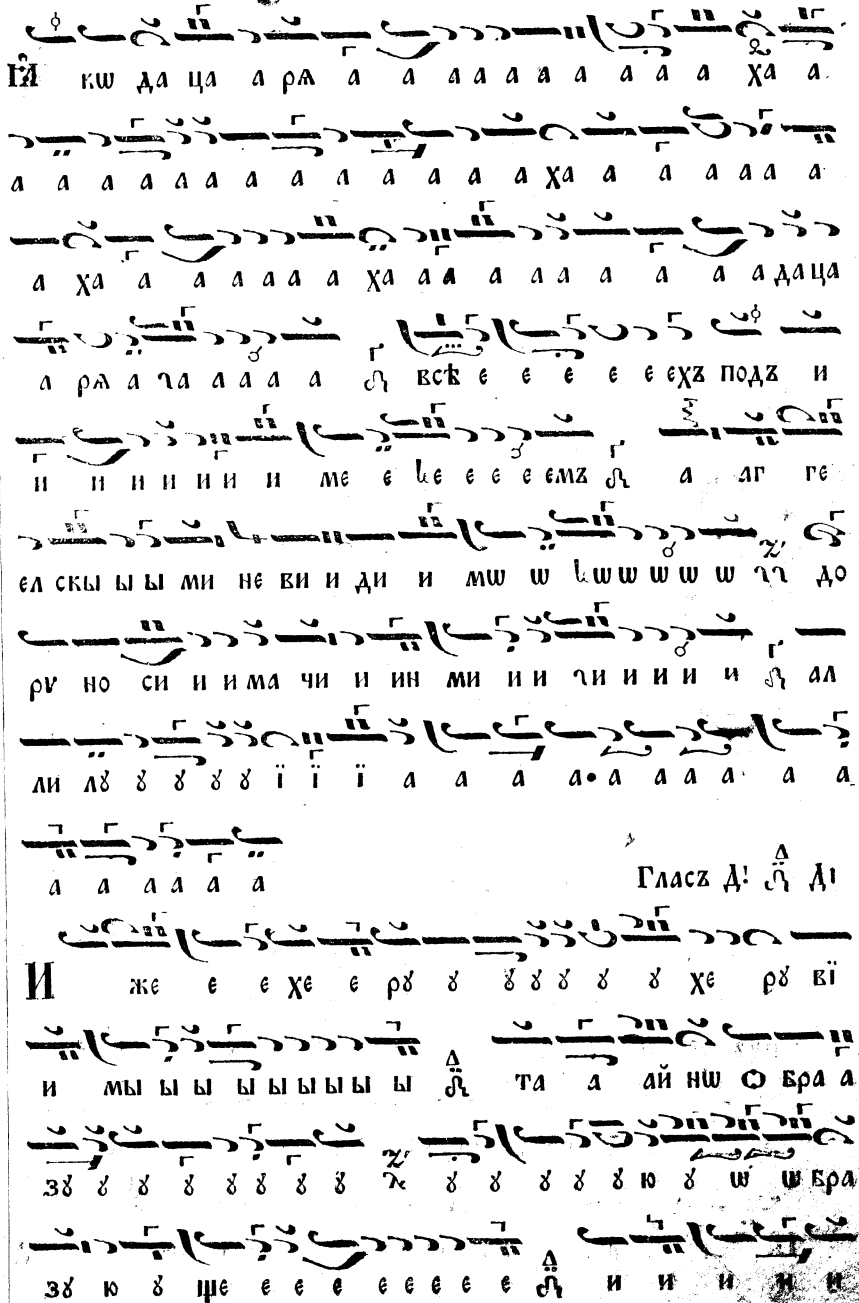 Ꙗ҆ кѡ да ца а рѧ а а а а а а а а а ха а
а а а а а а а а а а а а а ха а а а а а а
а ха а а а а а а ха а а а а а а а а а да ца
а рѧ а га а а а а всѣ е е е е е ехъ подъ и
и и и и и и и ме е е е е е емъ а аг ге
ел скы ы ы ми не ви и ди и мѡ ѡ ѡ ѡ ѡ ѡ ѡ до
рѵ но си и и ма чи и ин ми и и ги и и и и ал
ли лꙋ ꙋ ꙋ ꙋ ꙋ ї ї ї а а а а а а а а а а
а а а а а а Гласъ Д! Дı
И же е е хе е рꙋ ꙋ ꙋ ꙋ ꙋ ꙋ ꙋ хе рꙋ вї
и мы ы ы ы ы ы ы ы ы та а ай нѡ ѻ бра а
зꙋ ꙋ ꙋ ꙋ ꙋ ꙋ ꙋ ꙋ ꙋ ꙋ ꙋ ꙋ ꙋ ю ꙋ ѡ ѡ бра
зꙋ ю ꙋ ще е е е е е е е е и и и и и